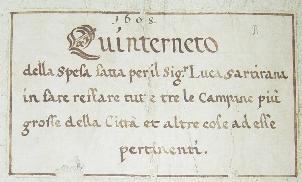 1608
Quinterneto
della Spesa fatta per il Sig.r Luca Sartirana
in fare restare tut e tre le Campane più
grosse della Città et altre cose ad esse
pertinenti.